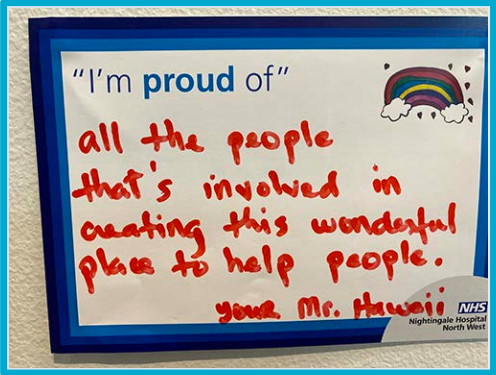 "I'm proud of"
all the people
that's involved in
creating this wonderful
place to help people.
your Mr. Hawaii
NHS
Nightingale Hospital
North West